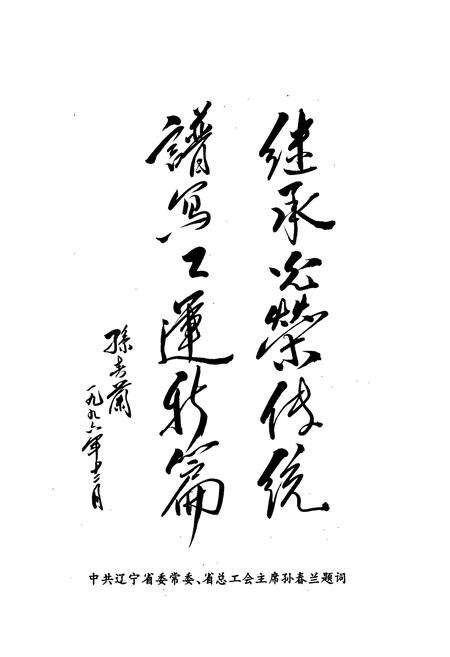 继承光荣传统
譜写工運新篇
孫春蘭
一九九六年十二月
中共辽宁省委常委、省总工会主席孙春兰题词